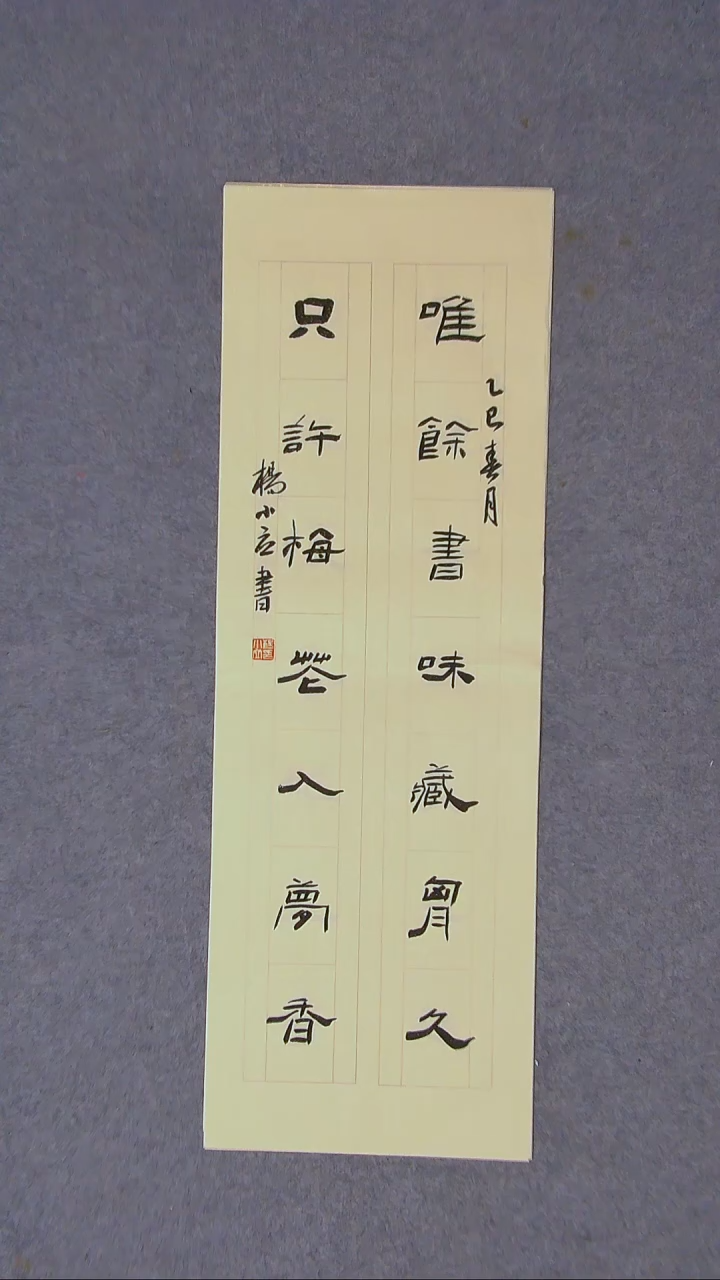 唯餘書味藏胷久
乙巳春月
只許梅花入夢香
楊小　書